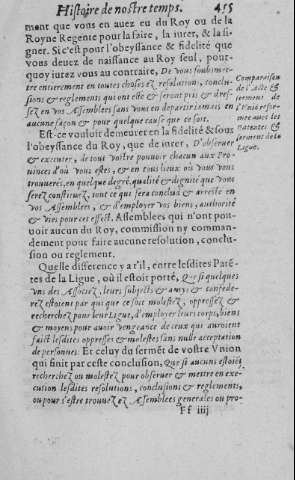 Histoire de nostre temps. 455
ment que vous en auez eu du Roy ou de la
Royne Regente pour la faire, la iurer, & la si-
gner. Si c'est pour l'obeyssance & fidelité que
vous deuez de naissance au Roy seul, pour-
quoy iutez vous au contraire, De vous soubmet-
tre entierement en toutes choses & resolution, conclu-
sions & reglements qui ont esté & seront pris & dres-
sez en vos Assemblees sans vous en departir iamais en
aucune façon & pour quelque cause que ce soit.
Comparaison
de l'Acte &
serment de
l'Vnion refor-
mee auec les
Patentes &
serment de la
Ligue.
Est-ce vouloir demeurer en la fidelité & sous
l'obeyssance du Roy, que de iurer, D'obseruer
& executer, de tout vostre pouuoir chacun aux Pro-
uinces d'où vous estes, & en tous lieux où vous vous
trouuerez, en quelque degré, qualité & dignité que vous
serez constituez, tout ce qui sera conclus & arresté en
vos Assemblees, & d'employer vos biens, authorité
& vies pour cet effect. Assemblees qui n'ont pou-
uoir aucun du Roy, commission ny comman-
dement pour faire aucune resolution, conclu-
sion ou reglement.
Quelle difference y a r'il, entre lesdites Paté-
tes de la Ligue, où il estoit porté, Que si quelques
vns des Associez, leurs subjects & amys & confede-
rez estoient par qui que ce soit molestez, oppressez &
recherchez pour leur Ligue, d'employer leurs corps, biens
& moyens pour auoir vengeance de ceux qui auroient
faict lesdits oppresses & molestes sans nulle acceptation
de personnes. Et celuy du sermēt de vostre Vnion
qui finit par ceste conclusion, Que si aucuns estoiēt
recherchez ou molestez pour obseruer & mettre en exe-
cution lesdites resolutions, conclusions & reglements,
ou pour s'estre trouuez ez Assemblees generales ou pro-
Ff iiij